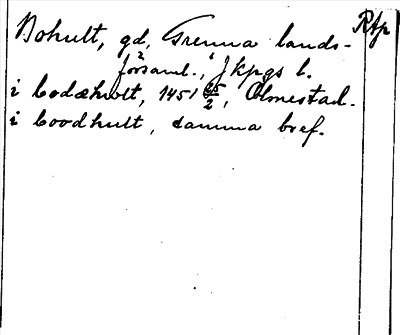 Bohult, gd, Grenna lands- Rtp
församl., Jkpgs l.
i bodæhwlt, 1451 25/2, Ölmestad.
i boodhult, samma bref.